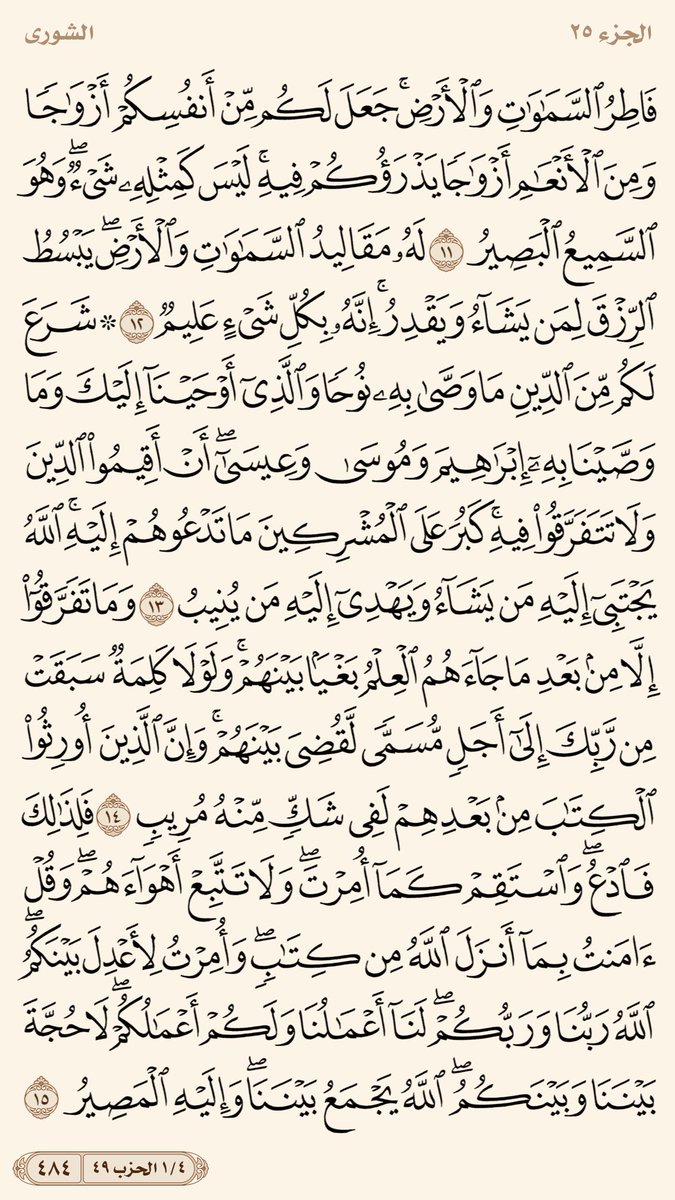 الجزء ٢٥ الشورى
فَاطِرُ ٱلسَّمَٰوَٰتِ وَٱلۡأَرۡضِۚ جَعَلَ لَكُم مِّنۡ أَنفُسِكُمۡ أَزۡوَٰجٗا
وَمِنَ ٱلۡأَنۡعَٰمِ أَزۡوَٰجٗا يَذۡرَؤُكُمۡ فِيهِۚ لَيۡسَ كَمِثۡلِهِۦ شَيۡءٞۖ وَهُوَ
ٱلسَّمِيعُ ٱلۡبَصِيرُ ١١ لَهُۥ مَقَالِيدُ ٱلسَّمَٰوَٰتِ وَٱلۡأَرۡضِۖ يَبۡسُطُ
ٱلرِّزۡقَ لِمَن يَشَآءُ وَيَقۡدِرُۚ إِنَّهُۥ بِكُلِّ شَيۡءٍ عَلِيمٞ ١٢ ۞ شَرَعَ
لَكُم مِّنَ ٱلدِّينِ مَا وَصَّىٰ بِهِۦ نُوحٗا وَٱلَّذِيٓ أَوۡحَيۡنَآ إِلَيۡكَ وَمَا
وَصَّيۡنَا بِهِۦٓ إِبۡرَٰهِيمَ وَمُوسَىٰ وَعِيسَىٰٓۖ أَنۡ أَقِيمُواْ ٱلدِّينَ
وَلَا تَتَفَرَّقُواْ فِيهِۚ كَبُرَ عَلَى ٱلۡمُشۡرِكِينَ مَا تَدۡعُوهُمۡ إِلَيۡهِۚ ٱللَّهُ
يَجۡتَبِيٓ إِلَيۡهِ مَن يَشَآءُ وَيَهۡدِيٓ إِلَيۡهِ مَن يُنِيبُ ١٣ وَمَا تَفَرَّقُوٓاْ
إِلَّا مِنۢ بَعۡدِ مَا جَآءَهُمُ ٱلۡعِلۡمُ بَغۡيَۢا بَيۡنَهُمۡۚ وَلَوۡلَا كَلِمَةٞ سَبَقَتۡ
مِن رَّبِّكَ إِلَىٰٓ أَجَلٖ مُّسَمّٗى لَّقُضِيَ بَيۡنَهُمۡۚ وَإِنَّ ٱلَّذِينَ أُورِثُواْ
ٱلۡكِتَٰبَ مِنۢ بَعۡدِهِمۡ لَفِي شَكّٖ مِّنۡهُ مُرِيبٖ ١٤ فَلِذَٰلِكَ
فَٱدۡعُۖ وَٱسۡتَقِمۡ كَمَآ أُمِرۡتَۖ وَلَا تَتَّبِعۡ أَهۡوَآءَهُمۡۖ وَقُلۡ
ءَامَنتُ بِمَآ أَنزَلَ ٱللَّهُ مِن كِتَٰبٖۖ وَأُمِرۡتُ لِأَعۡدِلَ بَيۡنَكُمُۖ
ٱللَّهُ رَبُّنَا وَرَبُّكُمۡۖ لَنَآ أَعۡمَٰلُنَا وَلَكُمۡ أَعۡمَٰلُكُمۡۖ لَا حُجَّةَ
بَيۡنَنَا وَبَيۡنَكُمُۖ ٱللَّهُ يَجۡمَعُ بَيۡنَنَاۖ وَإِلَيۡهِ ٱلۡمَصِيرُ ١٥
١/٤ الحزب ٤٩ ٤٨٤